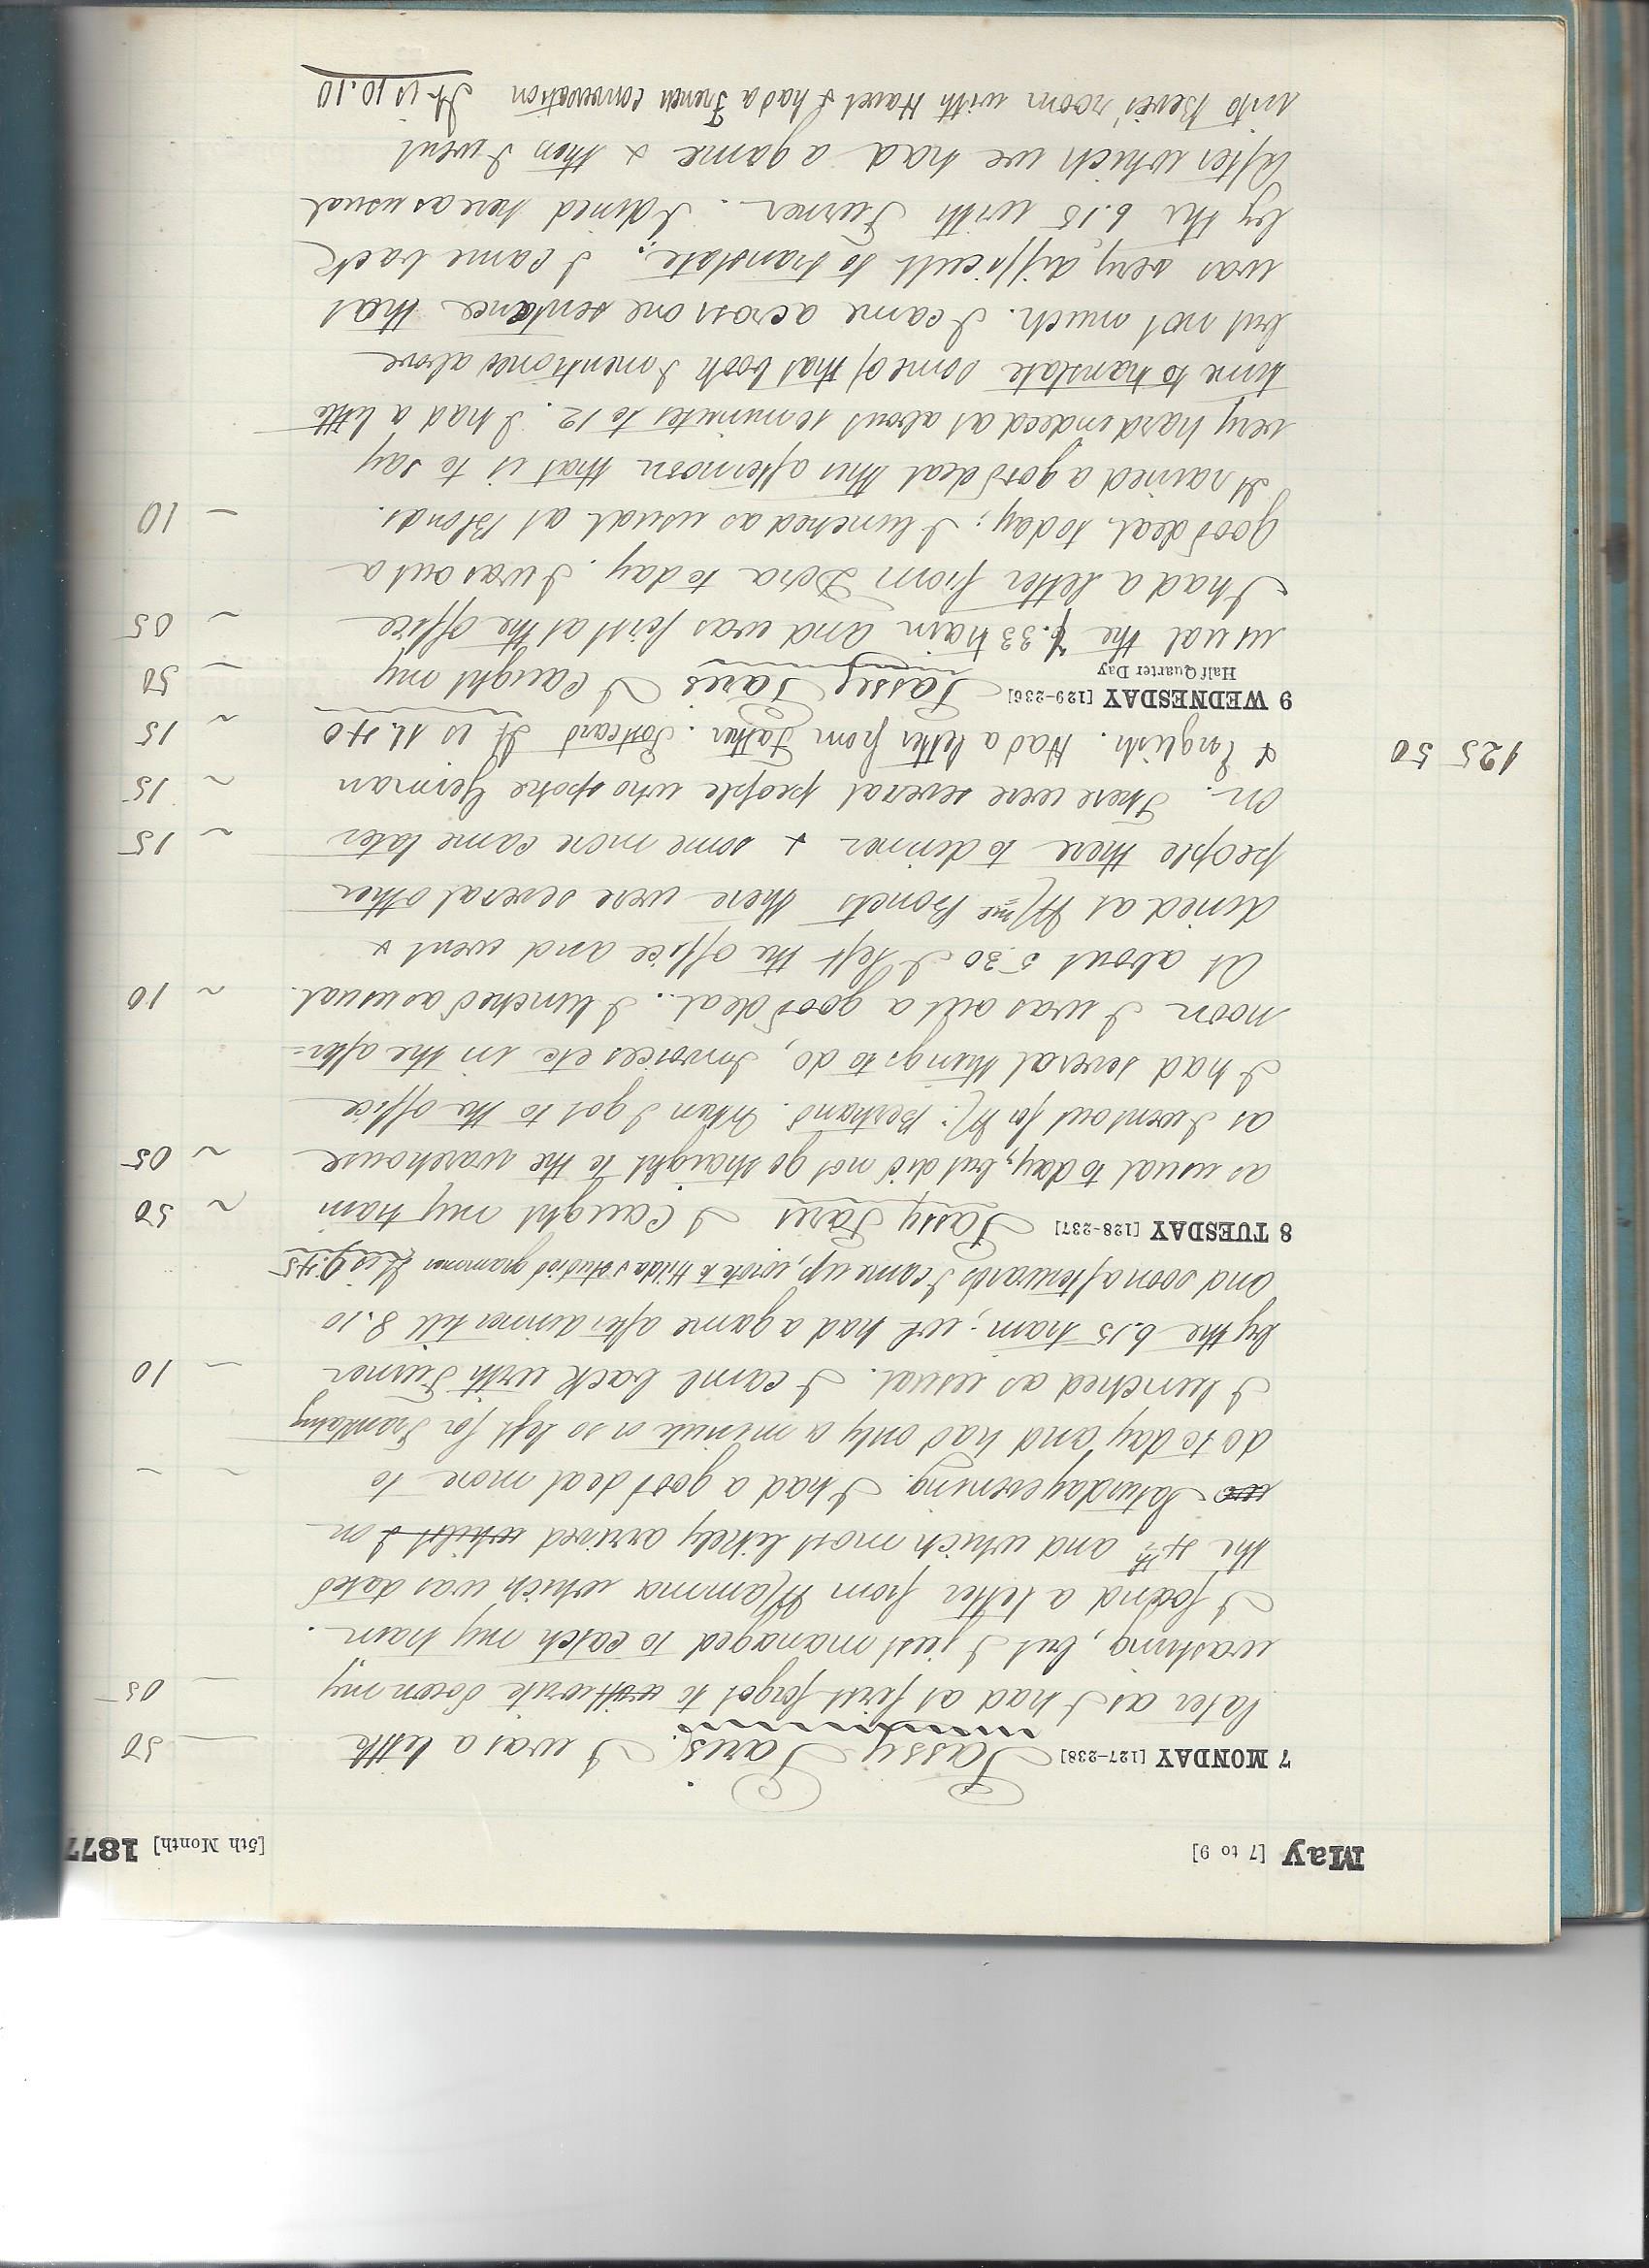 May [7 to 9] [5th Month] 1877
7 MONDAY [127-238] Passy Paris. I was a little — 50
later as I had at first forgot to write down my — 05
washing, but I just managed to catch my train.
I found a letter from Mamma which was dated
the 4th and which most likely arrived whilst I on
Saturday evening. I had a good deal more to ~ -
do to day and had only a minute or so left for Translating
I lunched as usual. I came back with Turner ~ 10
by the 6.15 train; we had a game after dinner till 8.10
and soon afterwards I came up, wrote to Hilda & studied grammar It is 9.45
8 TUESDAY [128-237] Passy Paris I caught my train ~ 50
as usual to day, but did not go straight to the warehouse ~ 05
as I went out for M: Bertrand. When I got to the office
I had several things to do, Invoices etc in the after=
noon I was out a good deal. I lunched as usual. ~ 10
At about 5.30 I left the office and went &
dined at Mme Bonets there were several other
people there to dinner & some more came later ~ 15
on. There were several people who spoke German ~ 15
& English. Had a letter from Father. Postcard It is 11.40 ~ 15
125 50
9 WEDNESDAY [129-236] Passy Paris I caught my — 50
Half Quarter Day
usual the 7.33 train and was first at the office ~ 05
I had a letter from Dora to day. I was out a
good deal to day; I lunched as usual at Blonds. — 10
It rained a good deal this afternoon that is to say
very hard indeed at about 10 minutes to 12. I had a little
time to translate some of that book I mentioned above
but not much. I came across one sentence that
was very difficult to translate. I came back
by the 6.15 with Turner. I dined here as usual
After which we had a game & then I went
into room with Havel & had a French conversation It is 10.10